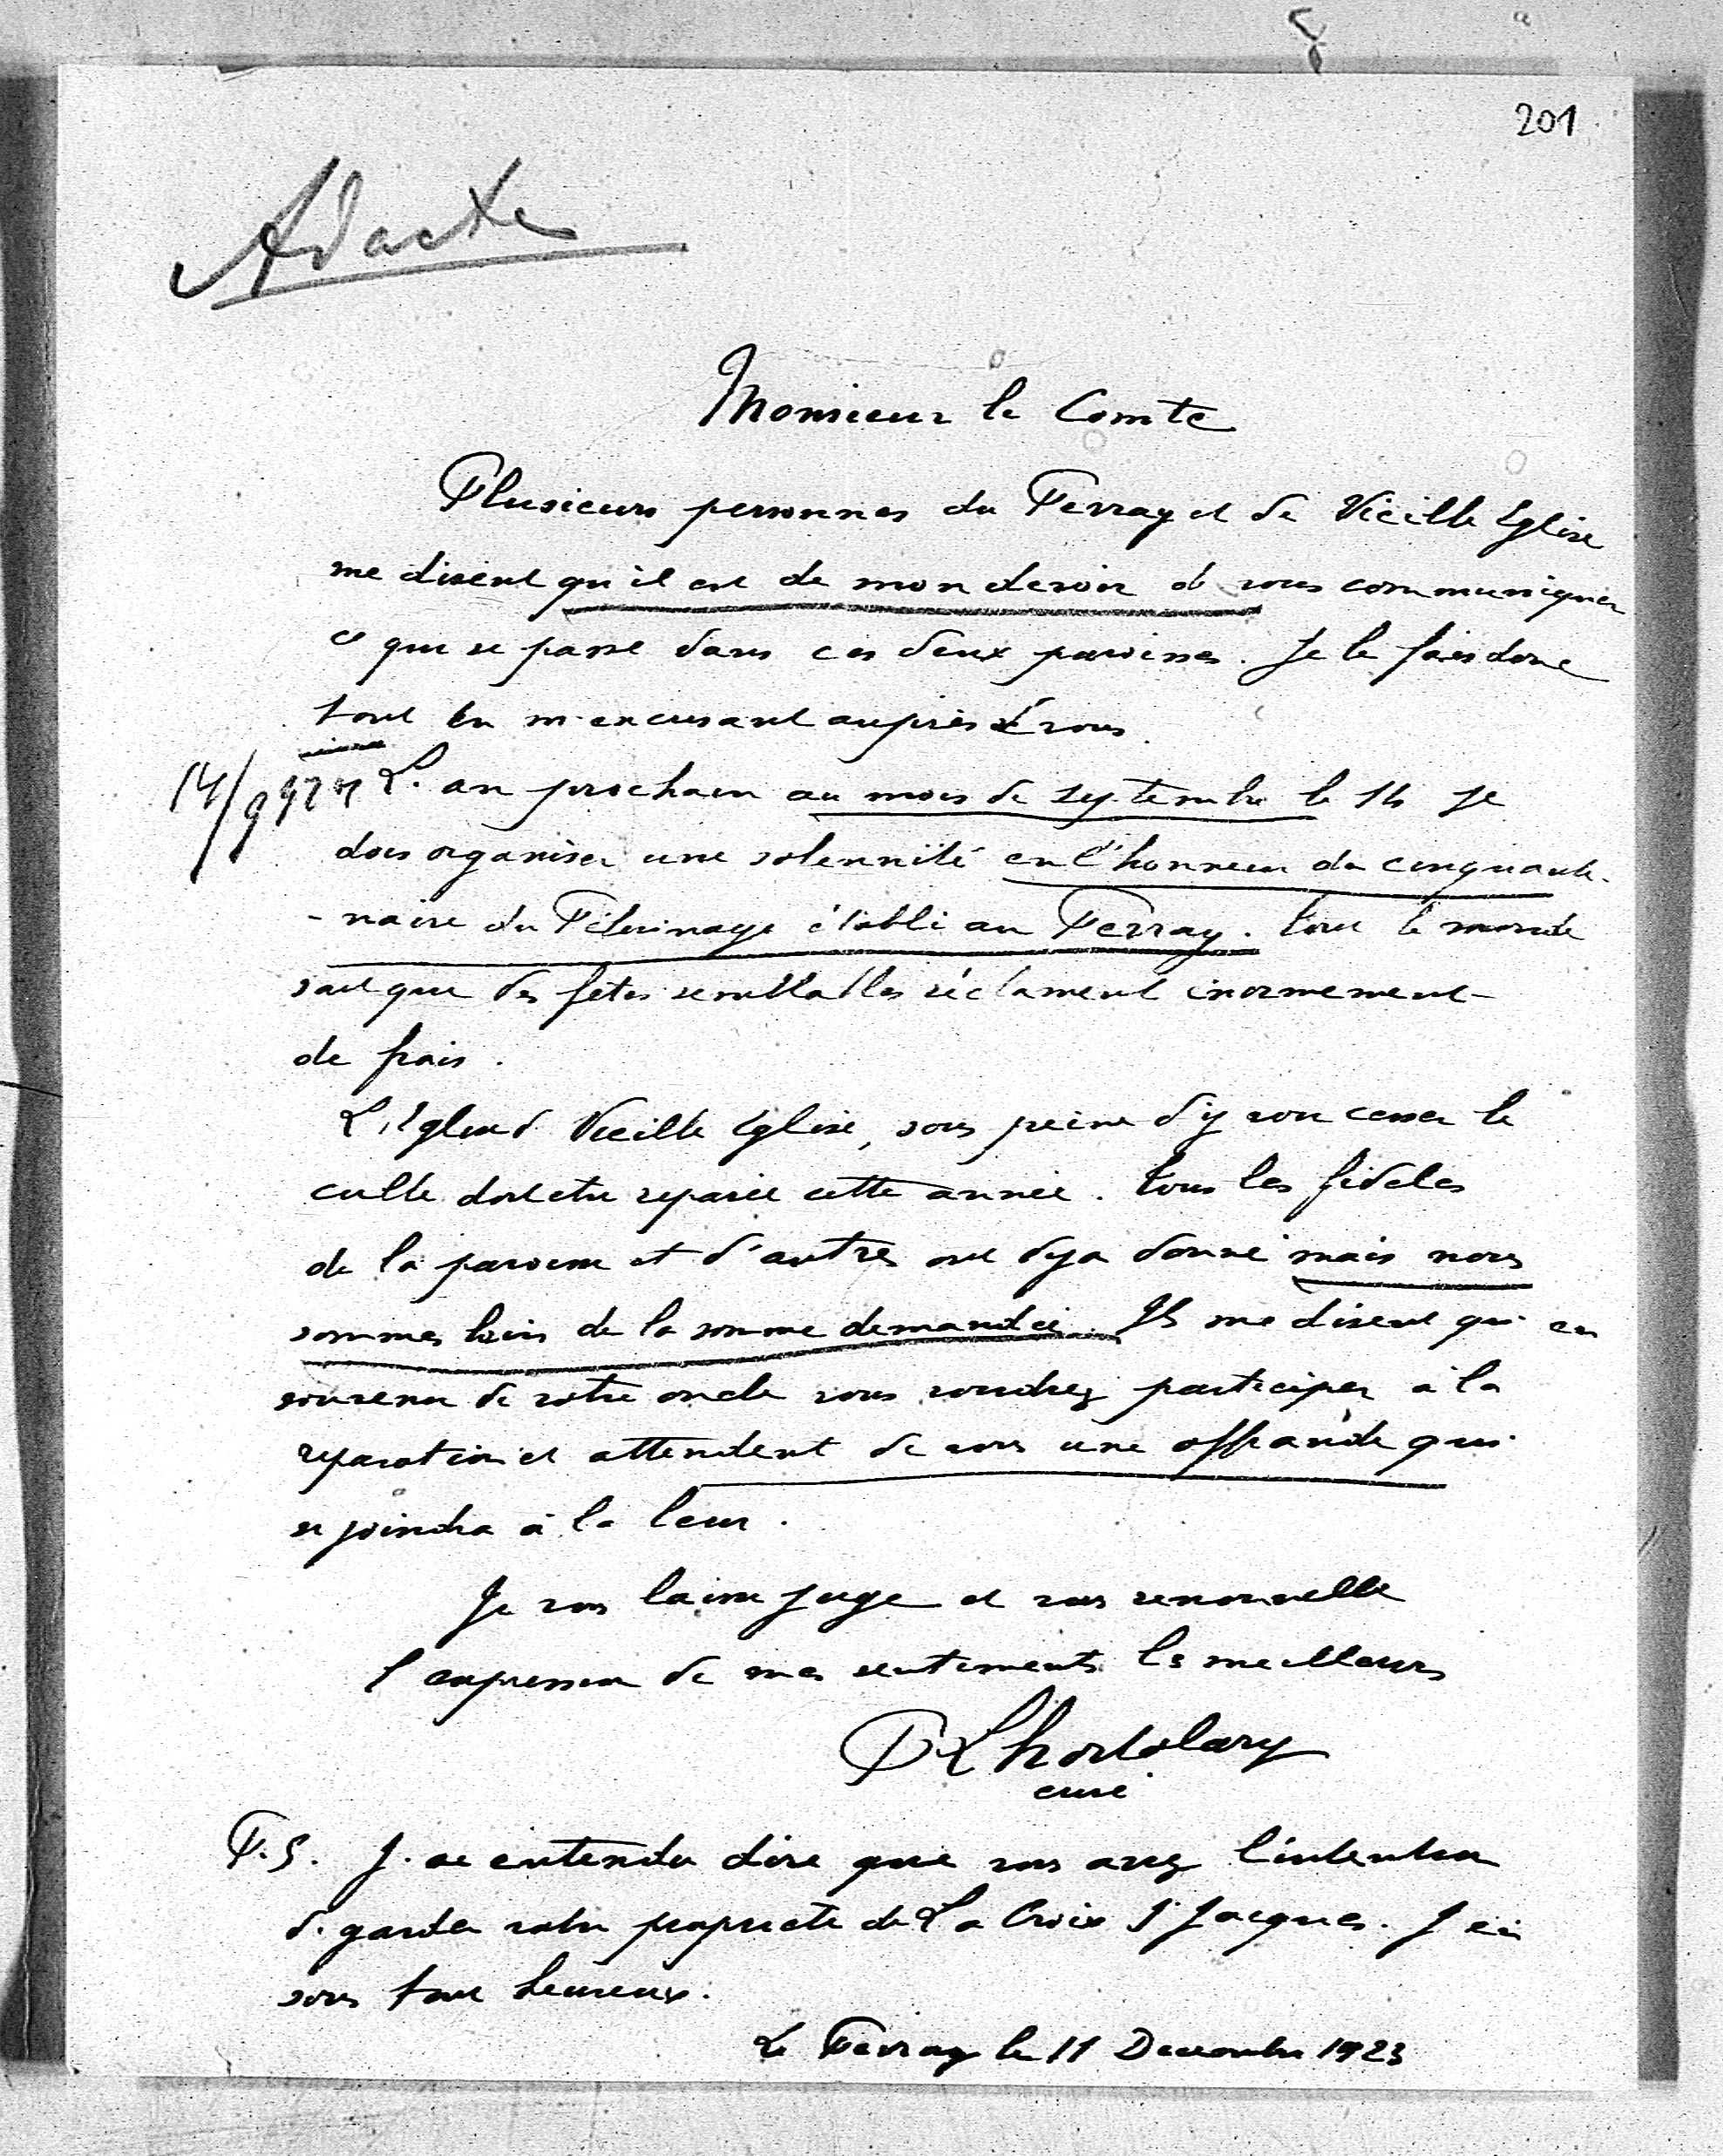 201
Ad acta
Monsieur le Comte
Plusieurs personnes du Perray et de Vieille Eglise
me disent qu'il est de mon devoir de vous communiquer
ce qui se passe dans ces deux paroisses. Je le fais donc
tout en m'excusant auprès de vous.
14/9 924 L'an prochain au mois de septembre le 14 je
dois organiser une solennité en l'honneur du cinquante-
-naire du Pélerinage établi au Perray. Tout le monde
sait que des fêtes semblables réclament énormement
de frais.
L'Eglise d Vieille Eglise, sous peine d'y voir cesser le
culte doit etre reparée cette année. Tous les fideles
de la paroisse et d'autres ont deja donné mais nous
sommes loin de la somme demandée. Ils me disent qu' en
souvenir de votre oncle vous voudrez participer à la
reparation et attendent de vous une offrande qui
se joindra à la leur.
Je vous laisse juge et vous renouvelle
l'expression de mes sentiments les meilleurs
P Lhortolary
curé
P.S. J'ai entendu dire que vous avez l'intention
de garder votre propriete de La Croix St Jacques. J'en
sous tout heureux.
Le Perray le 11 Decembre 1923